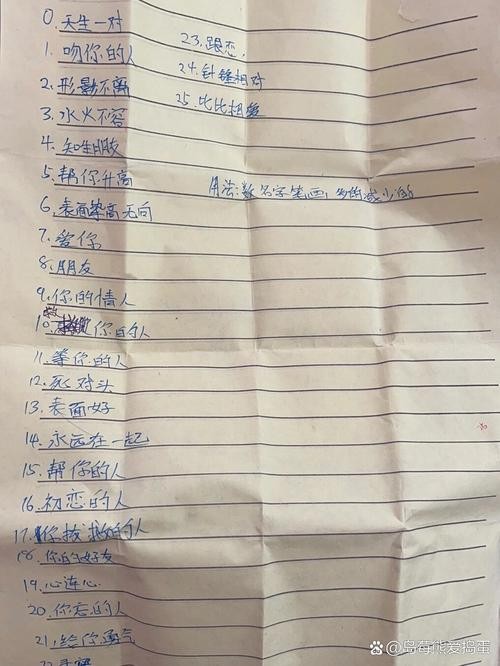 0.天生一对
1.吻你的人
2.形影不离
3.水火不容
4.知生朋友
5.帮你升高
6.表面染高无向
7.爱你
8.朋友
9.你的情人
10.你的人
11.等你的人
12.死对头
13.表面好
14.永远在一起
15.帮你的人
16.初恋的人
17.你拔救的人
18.你的好友
19.心连心
20.你恋的人
21.给你勇气
22.
23.跟恋.
24.针锤相对
25.比比相爱
用法:数名字笔画,多的减少的
百家号/@岛莓熊爱捣蛋